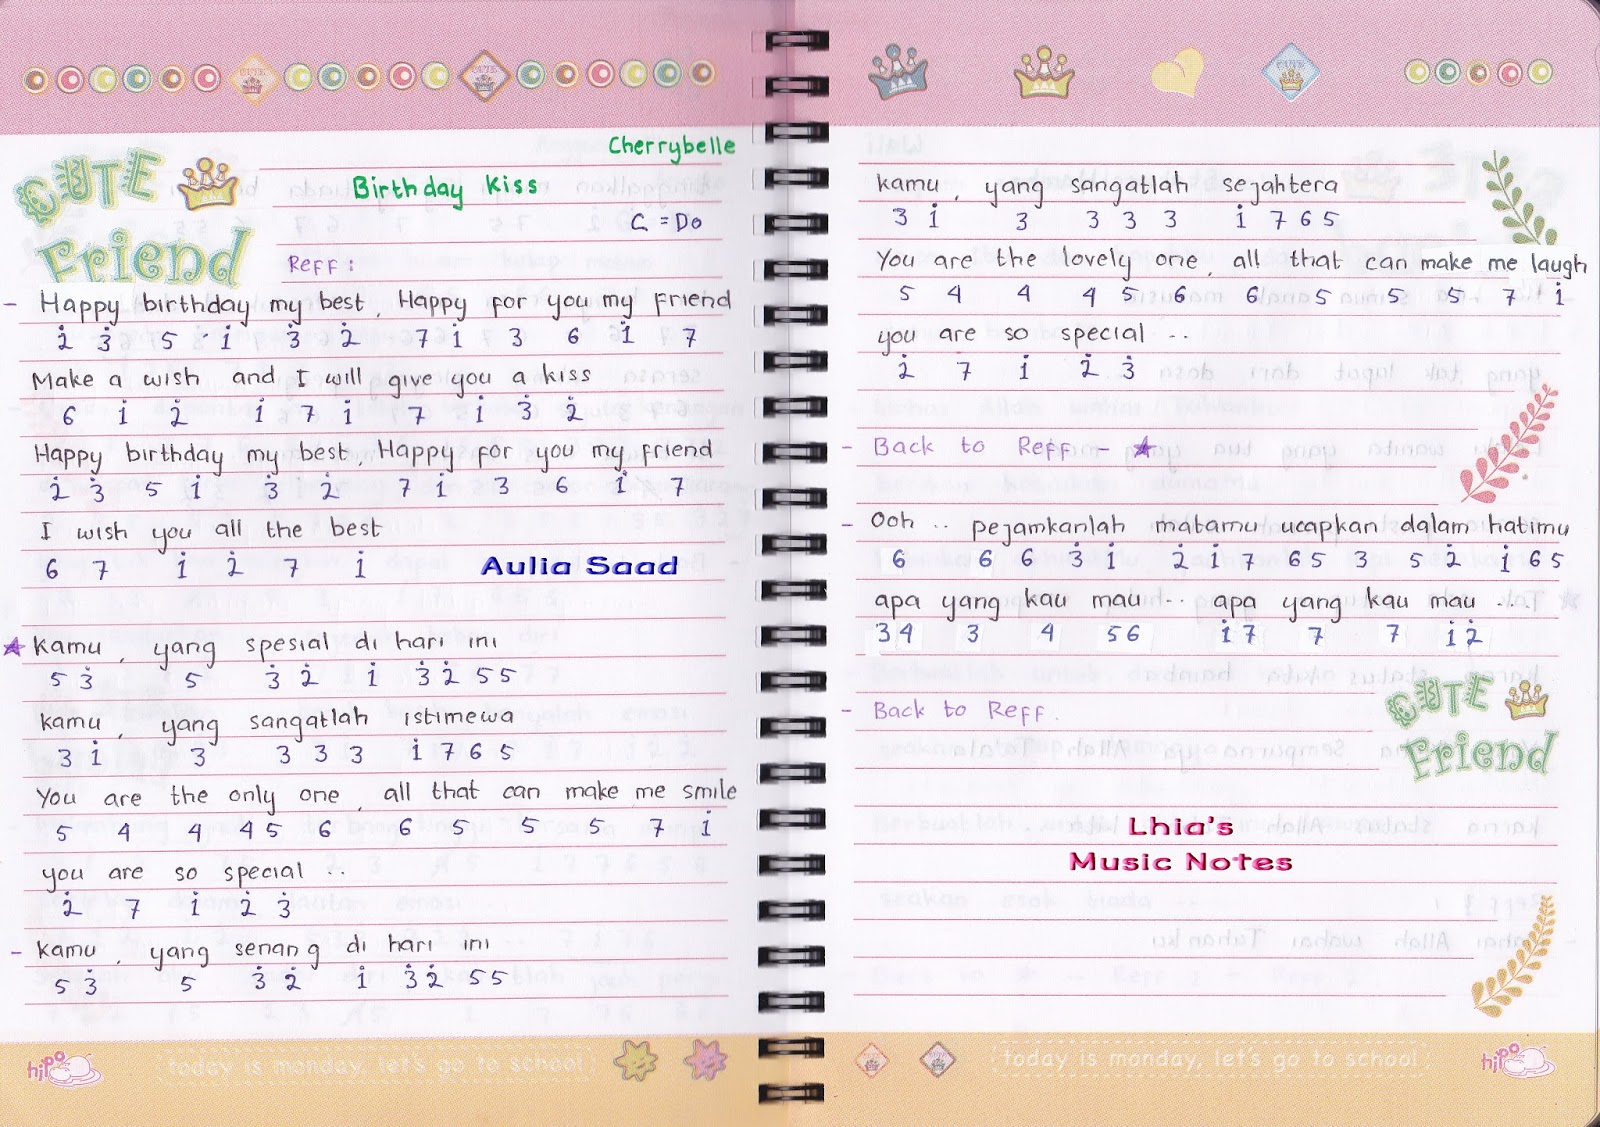 Cherrybelle
CUTE Friend
Birthday Kiss
C = Do
Reff :
- Happy birthday my best, Happy for you my friend
2̇ 3̇ 5 1̇ 3̇ 2̇ 7 1̇ 3 6 1̇ 7
Make a wish and I will give you a kiss
6 1̇ 2̇ 1̇ 7 1̇ 7 1̇ 3̇ 2̇
Happy birthday my best, Happy for you my friend
2̇ 3̇ 5 1̇ 3̇ 2̇ 7 1̇ 3 6 1̇ 7
I wish you all the best
6 7 1̇ 2̇ 7 1̇
Aulia Saad
★ kamu, yang spesial di hari ini
5 3̇ 5 3̇ 2̇ 1̇ 3̇ 2̇ 5 5
kamu, yang sangatlah istimewa
3 1̇ 3 3 3 3 1̇ 7 6 5
You are the only one, all that can make me smile
5 4 4 4 5 6 6 5 5 5 7 1̇
you are so special ..
2̇ 7 1̇ 2̇ 3̇
- kamu, yang senang di hari ini
5 3̇ 5 3̇ 2̇ 1̇ 3̇ 2̇ 5 5
hipo
today is monday, let's go to school
kamu, yang sangatlah sejahtera
3 1̇ 3 3 3 3 1̇ 7 6 5
You are the lovely one, all that can make me laugh
5 4 4 4 5 6 6 5 5 5 7 1̇
you are so special ..
2̇ 7 1̇ 2̇ 3̇
- Back to Reff - ★
- Ooh .. pejamkanlah matamu ucapkan dalam hatimu
6 6 6 3̇ 1̇ 2̇ 1̇ 7 6 5 3 5 2̇ 1̇ 6 5
apa yang kau mau .. apa yang kau mau ....
3 4 3 4 5 6 1̇ 7 7 7 1̇ 2̇
- Back to Reff.
CUTE Friend
Lhia's
Music Notes
today is monday, let's go to school
hipo